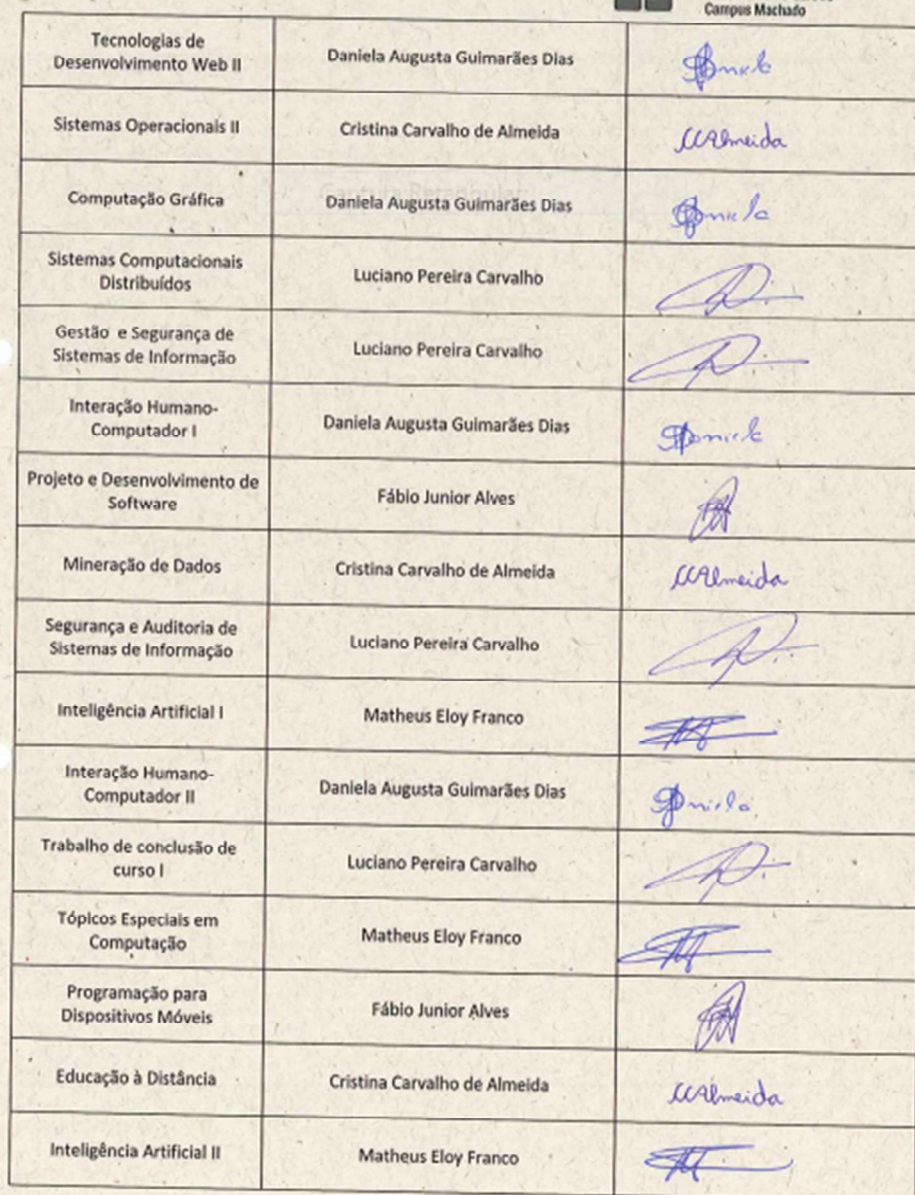 Campus Machado
Tecnologias de
Desenvolvimento Web II
Daniela Augusta Guimarães Dias
Daniela
Sistemas Operacionais II
Cristina Carvalho de Almeida
CCAlmeida
Computação Gráfica
Daniela Augusta Guimarães Dias
Daniela
Sistemas Computacionais
Distribuídos
Luciano Pereira Carvalho
Gestão e Segurança de
Sistemas de Informação
Luciano Pereira Carvalho
Interação Humano-
Computador I
Daniela Augusta Guimarães Dias
Daniela
Projeto e Desenvolvimento de
Software
Fábio Junior Alves
Mineração de Dados
Cristina Carvalho de Almeida
CCAlmeida
Segurança e Auditoria de
Sistemas de Informação
Luciano Pereira Carvalho
Inteligência Artificial I
Matheus Eloy Franco
Interação Humano-
Computador II
Daniela Augusta Guimarães Dias
Daniela
Trabalho de conclusão de
curso I
Luciano Pereira Carvalho
Tópicos Especiais em
Computação
Matheus Eloy Franco
Programação para
Dispositivos Móveis
Fábio Junior Alves
Educação à Distância
Cristina Carvalho de Almeida
CCAlmeida
Inteligência Artificial II
Matheus Eloy Franco